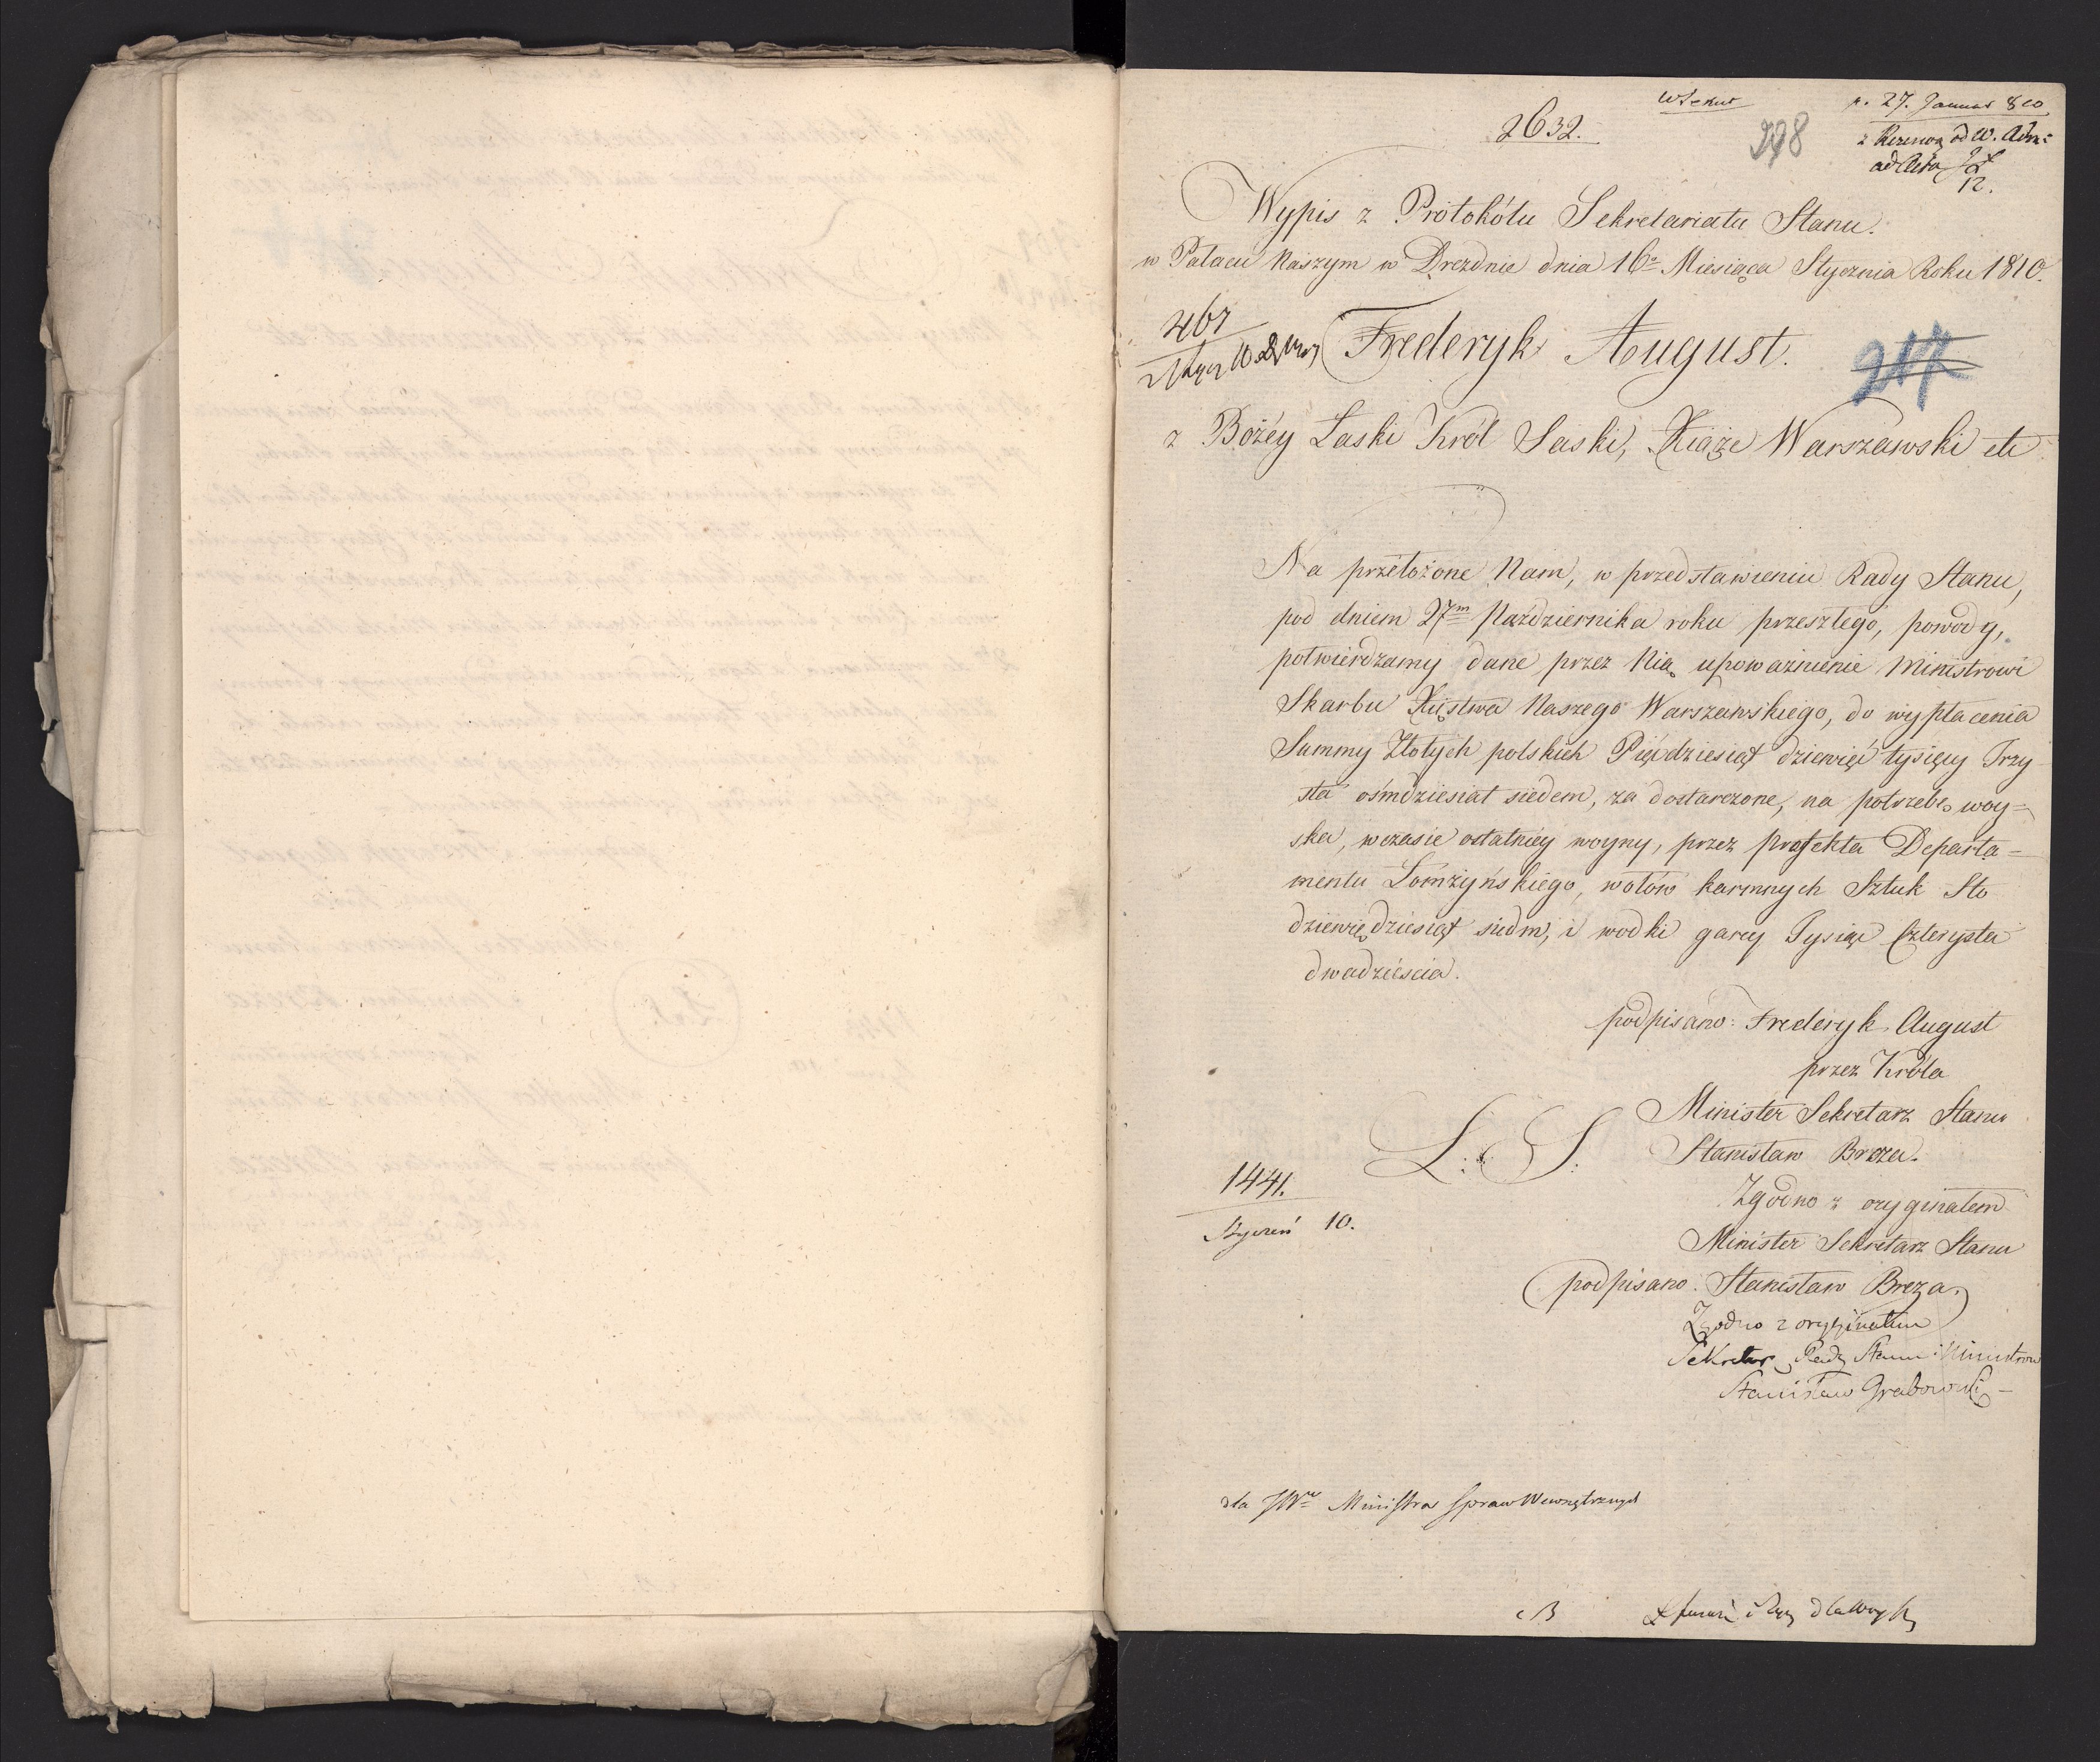 2632.
298
p. 27. Januar 810
Wypis z Protokółu Sekretariatu Stanu.
w Pałacu Naszym w Dreznie dnia 16o Miesiąca Stycznia Roku 1810.
467
Frederyk August.
217
z Bożéy Łaski Król Saski, Xiąże Warszawski etc
Na przełożone Nam, w przedstawieniu Rady Stanu,
pod dniem 27m Października roku przeszłego, powody,
potwierdzamy dane przez Nią upoważnienie Ministrowi
Skarbu Xięstwa Naszego Warszawskiego, do wypłacenia
Summy Złotych polskich Pięćdziesiąt dziewięć tysięcy Trzy
sta ośmdziesiat siedem, za dostarczone, na potrzebę woy=
ska, w czasie ostatniey woyny, przez Prefekta Departa=
mentu Łomżyńskiego, wołów karmnych Sztuk Sto
dziewięćdziesiąt siedm, i wodki garcy Tysiąc Czterysta
dwadzieścia.
podpisano: Frederyk August
przez Króla
Minister Sekretarz Stanu
L: S: Stanisław Breza.
1441.
Styczeń 10.
Zgodno z oryginałem
Minister Sekretarz Stanu
podpisano. Stanisław Breza.
Zgodno z oryginałem
Sekretarz Rady Stanu i Ministrow
Stanisław Grabowski
dla JWo Ministra Spraw Wewnętrznych